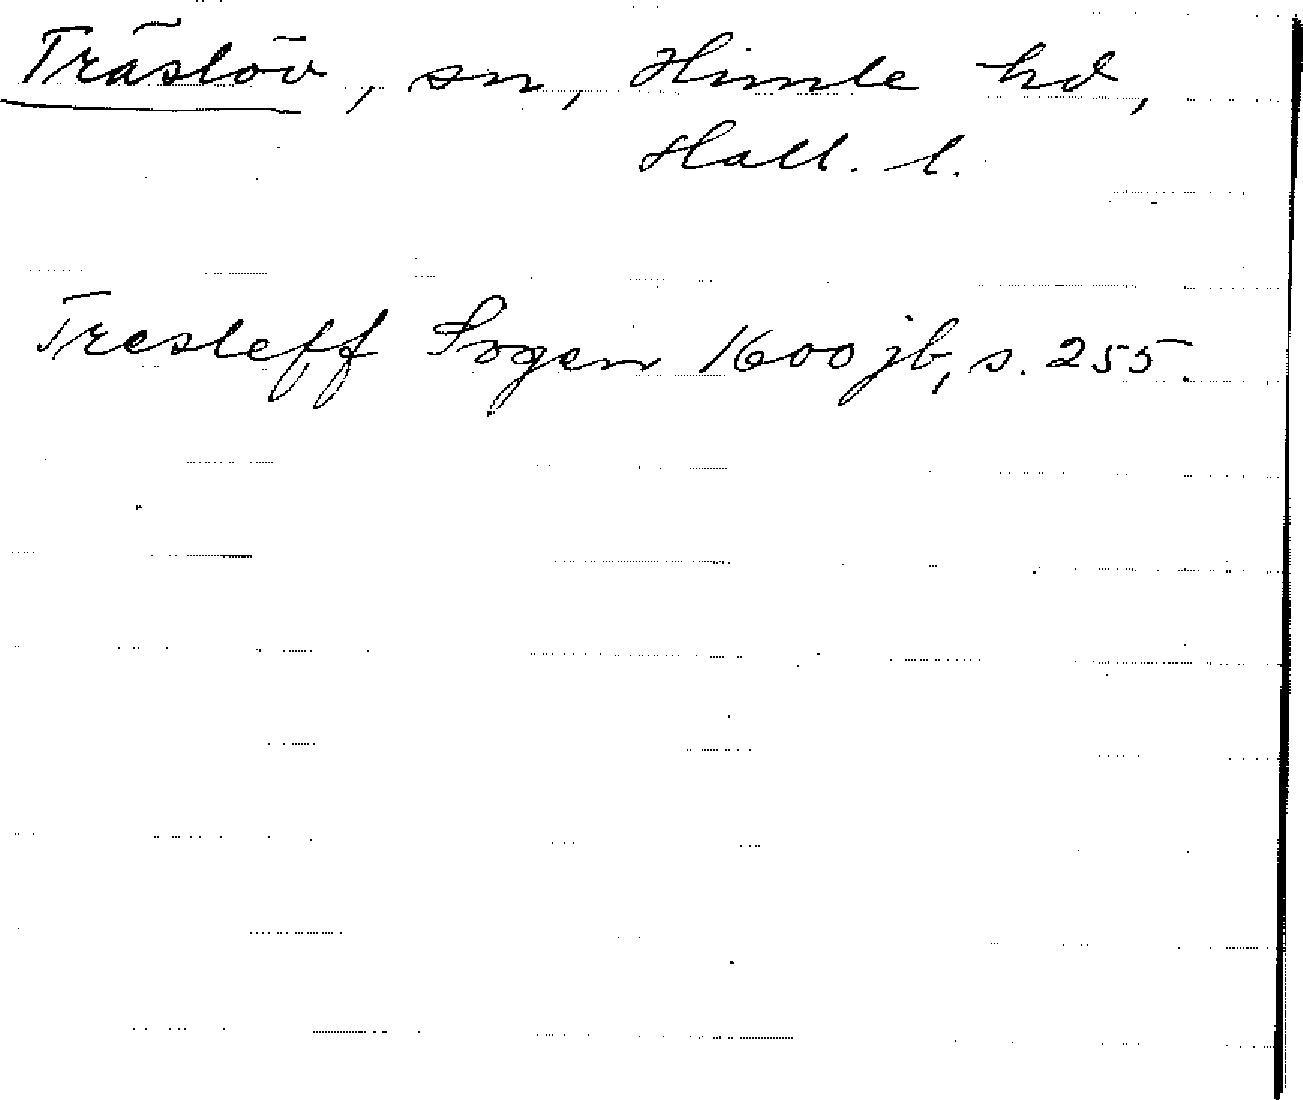 Träslöv, sn, Himle hd,
Hall. l.
Tresleff Sogen 1600 jb, s. 255.